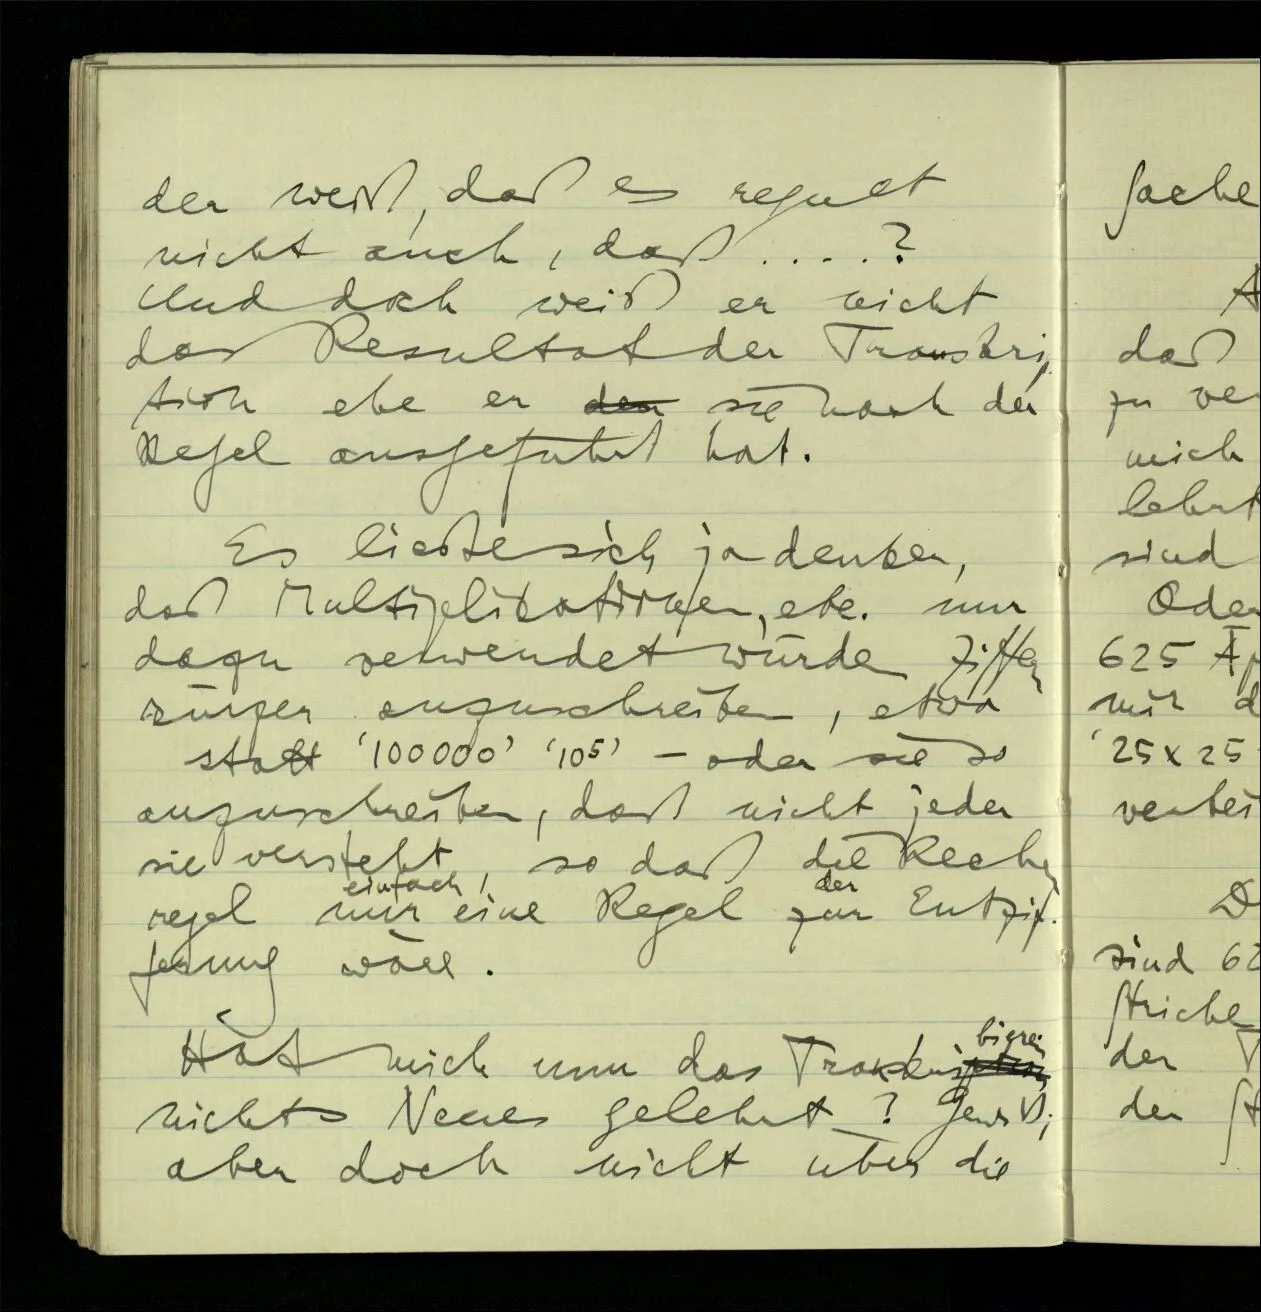 der weiß, daß es regnet
nicht auch, daß . . . . . ?
Und doch weiß er nicht
das Resultat der Transkrip
tion ehe er den sie nach der
Regel ausgeführt hat.
Es ließe sich ja denken,
daß Multiplikationen, etc. nur
dazu verwendet würde Ziffern
kürzer anzuschreiben, etwa
statt '100000' '10⁵' — oder sie so
anzuschreiben, daß nicht jeder
sie versteht, so daß die Rechen
einfach der
regel nur eine Regel zur Entzif-
ferung wäre.
bieren
Hat mich nun das Transkription
nichts Neues gelehrt? Gewiß;
aber doch nicht über die
Sache
A
daß
zu ver
mich
lehrt
sind
Oder
625 Äp
mir d
'25x25
vertei
D
sind 62
Striche
der T
der St